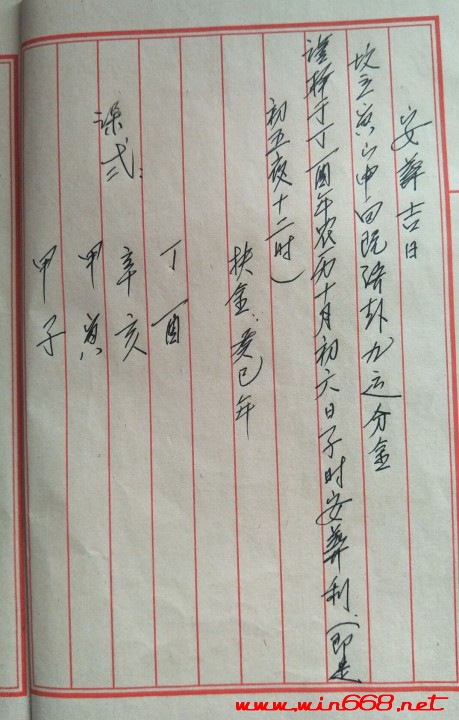 安葬吉日
坟立寅山申向既济卦九运分金
谨择于丁酉年农历十月初六日子时安葬利（即是
初五夜十二时）
扶金：癸巳年
丁酉
辛亥
甲寅
甲子
课式：
www.win668.net